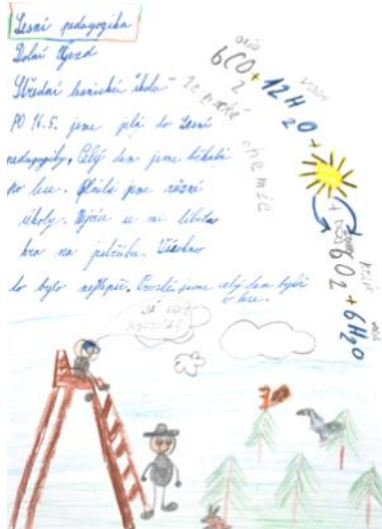 Lesní pedagogika
Dolní Újezd
Střední lesnická škola
PO 16.5. jsme jeli do Lesní
pedagogiky. Celý den jsme běhali
po lese. Plnili jsme různé
úkoly. Nejvíc se mi líbila
hra na jestřába. Všechno
to bylo nejlepší. Prostě jsme celý den byli
v lese.
6CO2 + 12H2O +
chemie
+
6O2 + 6H2O
Já vás